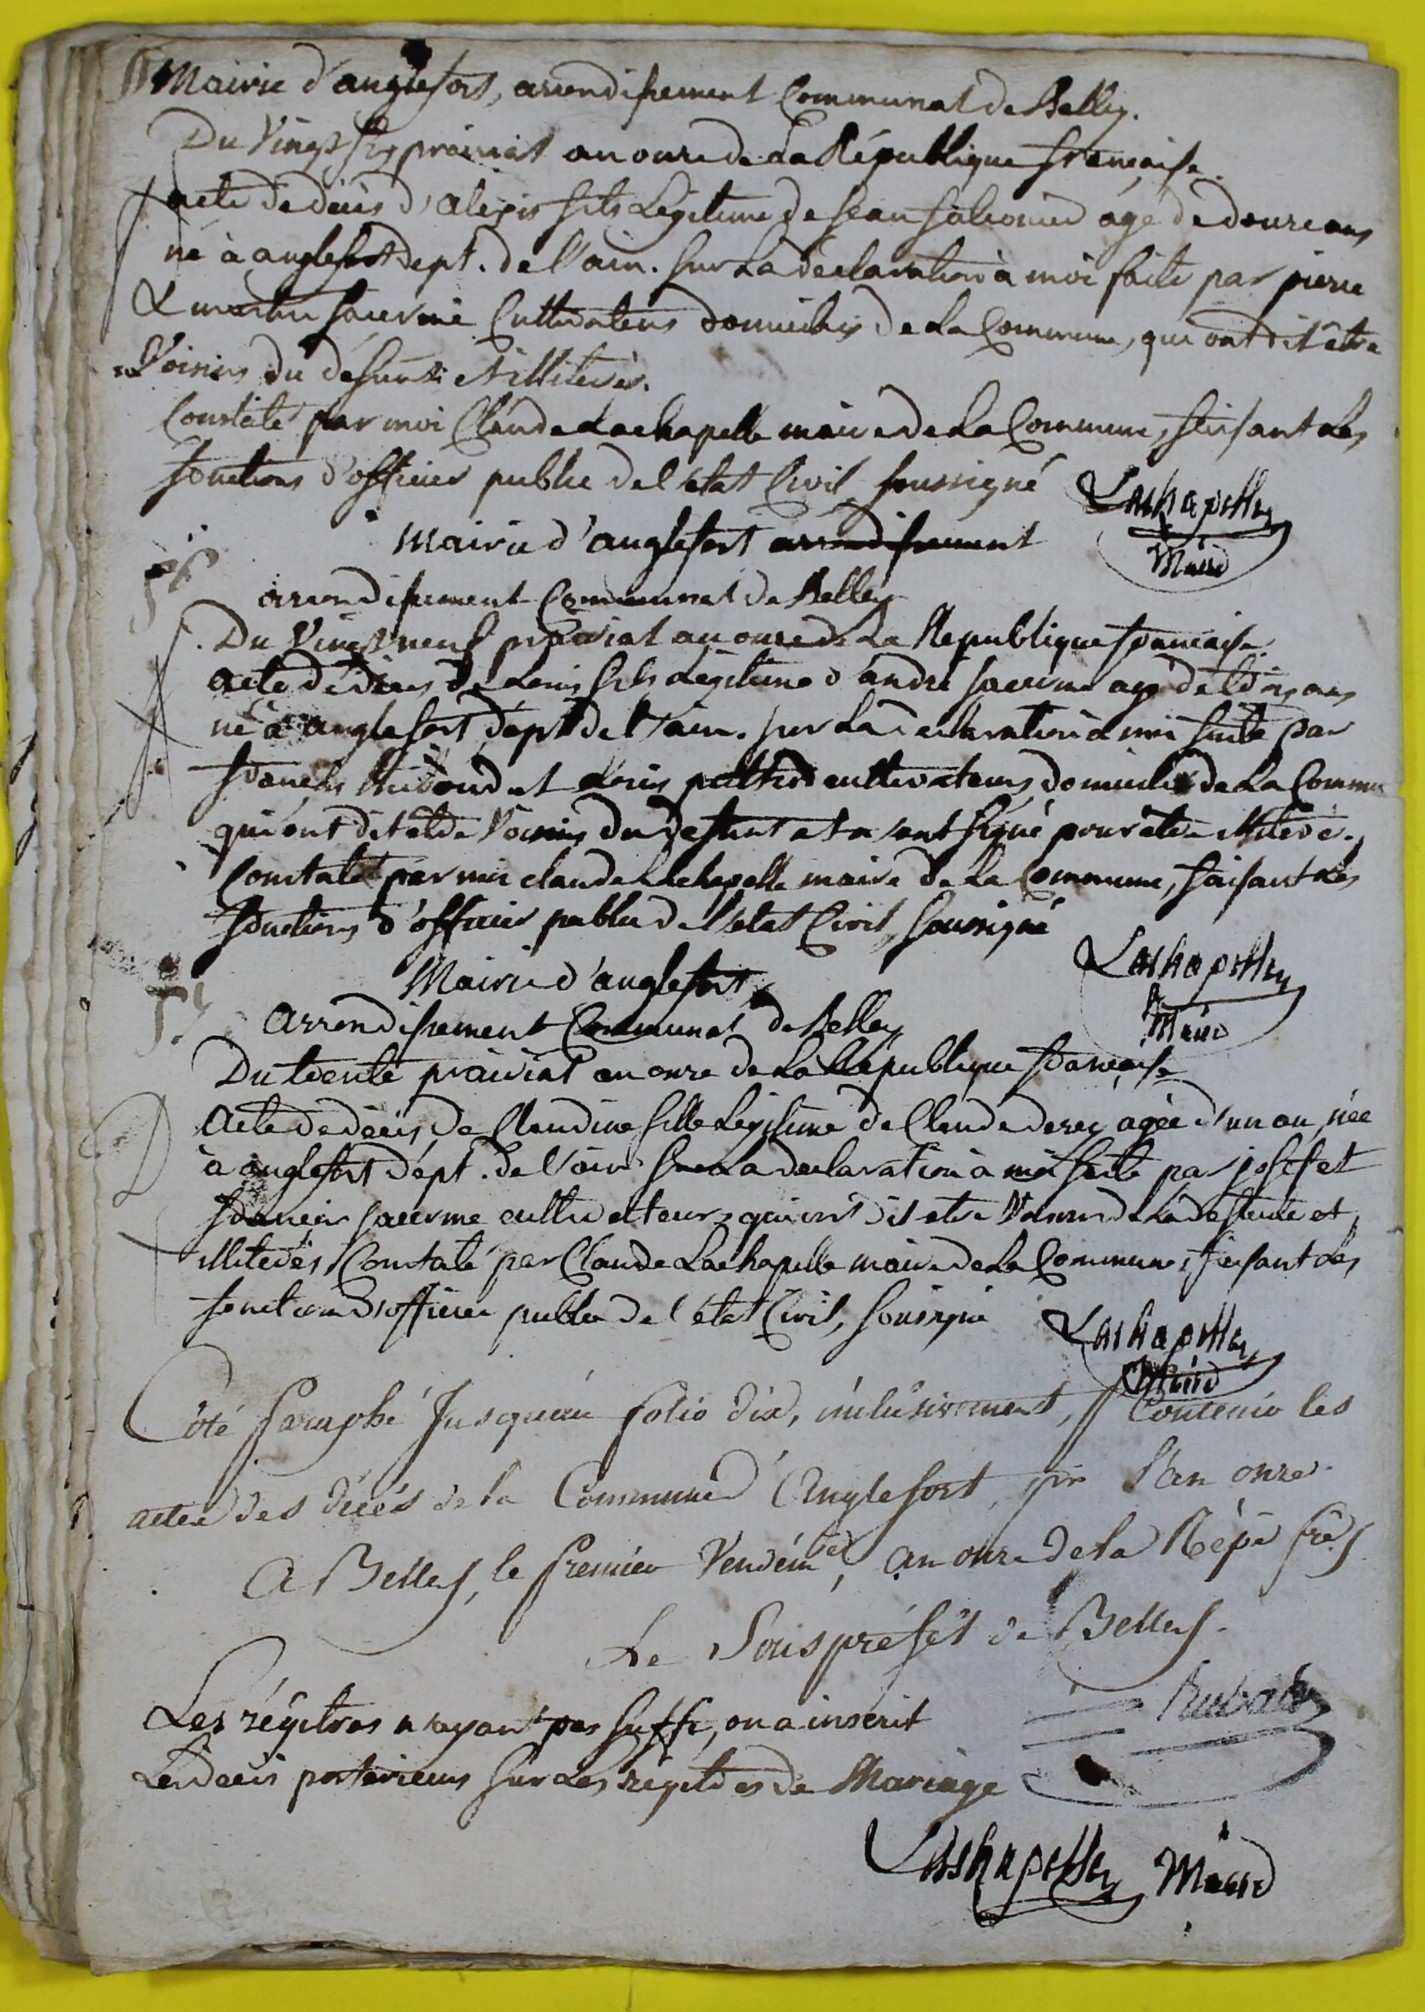 Mairie d'anglefort, arrondissement Communal de Belley.
Du Vingt six prairial an onze de La République française.
acte de décès d'alexis fils Légitime de jean falconier agé de douze ans
né à anglefort dept. de l'ain. sur La déclaration à moi faite par pierre
& martin jacerme Cultivateurs domiciliés de La Commune, qui ont dit être
Voisins du défunt et illiterés.
Constaté par moi Claude Lachapelle maire de La Commune, faisant Les
fonctions d'officier public de l'etat Civil, soussigné
Lachapelle
Maire
56
Mairie d'anglefort arrondissement
arrondissement Communal de Belley
Du Vingt neuf prairial an onze de La République française.
acte de décès de Louis fils Légitime d'andré jacerme agé de trois ans
né à anglefort dépt de l'ain. sur La déclaration à moi faite par
françois et Louis cultivateurs domiciliés de La Commune
qui ont dit etre Voisins du defunt et n'ont signé pour être illiteré.
Constaté par moi claude Lachapelle maire de La Commune, faisant Les
fonctions d'officier public de l'etat Civil, soussigné
Lachapelle
Maire
57
Mairie d'anglefort
arrondissement Communal de Belley
Du trente prairial an onze de La République française
Acte de décès de Claudine fille Légitime de Claude derey agée d'un an, née
à anglefort dépt. de l'ain sur La declaration à moi faite par josef et
françois jacerme cultivateurs, qui ont dit etre Voisins de La defunte et
illiterés Constaté par Claude Lachapelle maire de La Commune, faisant Les
fonctions d'officier public de l'état Civil, soussigné
Lachapelle
Maire
Côté Paraphé Jusqu'au folio dix, inclusivement, Contenir les
actes des décès de la Commune d'Anglefort, pr l'an onze.
A Belley, le Premier Vendémre, an onze de la Répe fse
Le Souspréfet de Belley.
Les régitres n'ayant pas suffi, on a inscrit
Les décès posterieurs sur Les regitres de Mariage
Lachapelle Maire